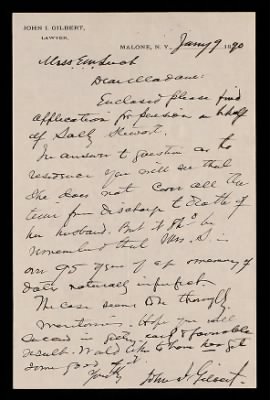 JOHN I. GILBERT,
LAWYER.
MALONE, N. Y., Jany 9 1890
Dear Madam:
Enclosed please find
application for pension on behalf
of Sally Stewart.
In answer to question as to
residence you will see that
she does not cover all the
time from discharge to death of
her husband. But it sho' be
remembered that Mrs. S. is
over 95 years of age memory of
dates naturally imperfect.
The case seems to be thoroughly
meritorious. Hope you will
succeed in getting early & favorable
result. Would like to have her get
some good of it.
Yours truly
John I. Gilbert.